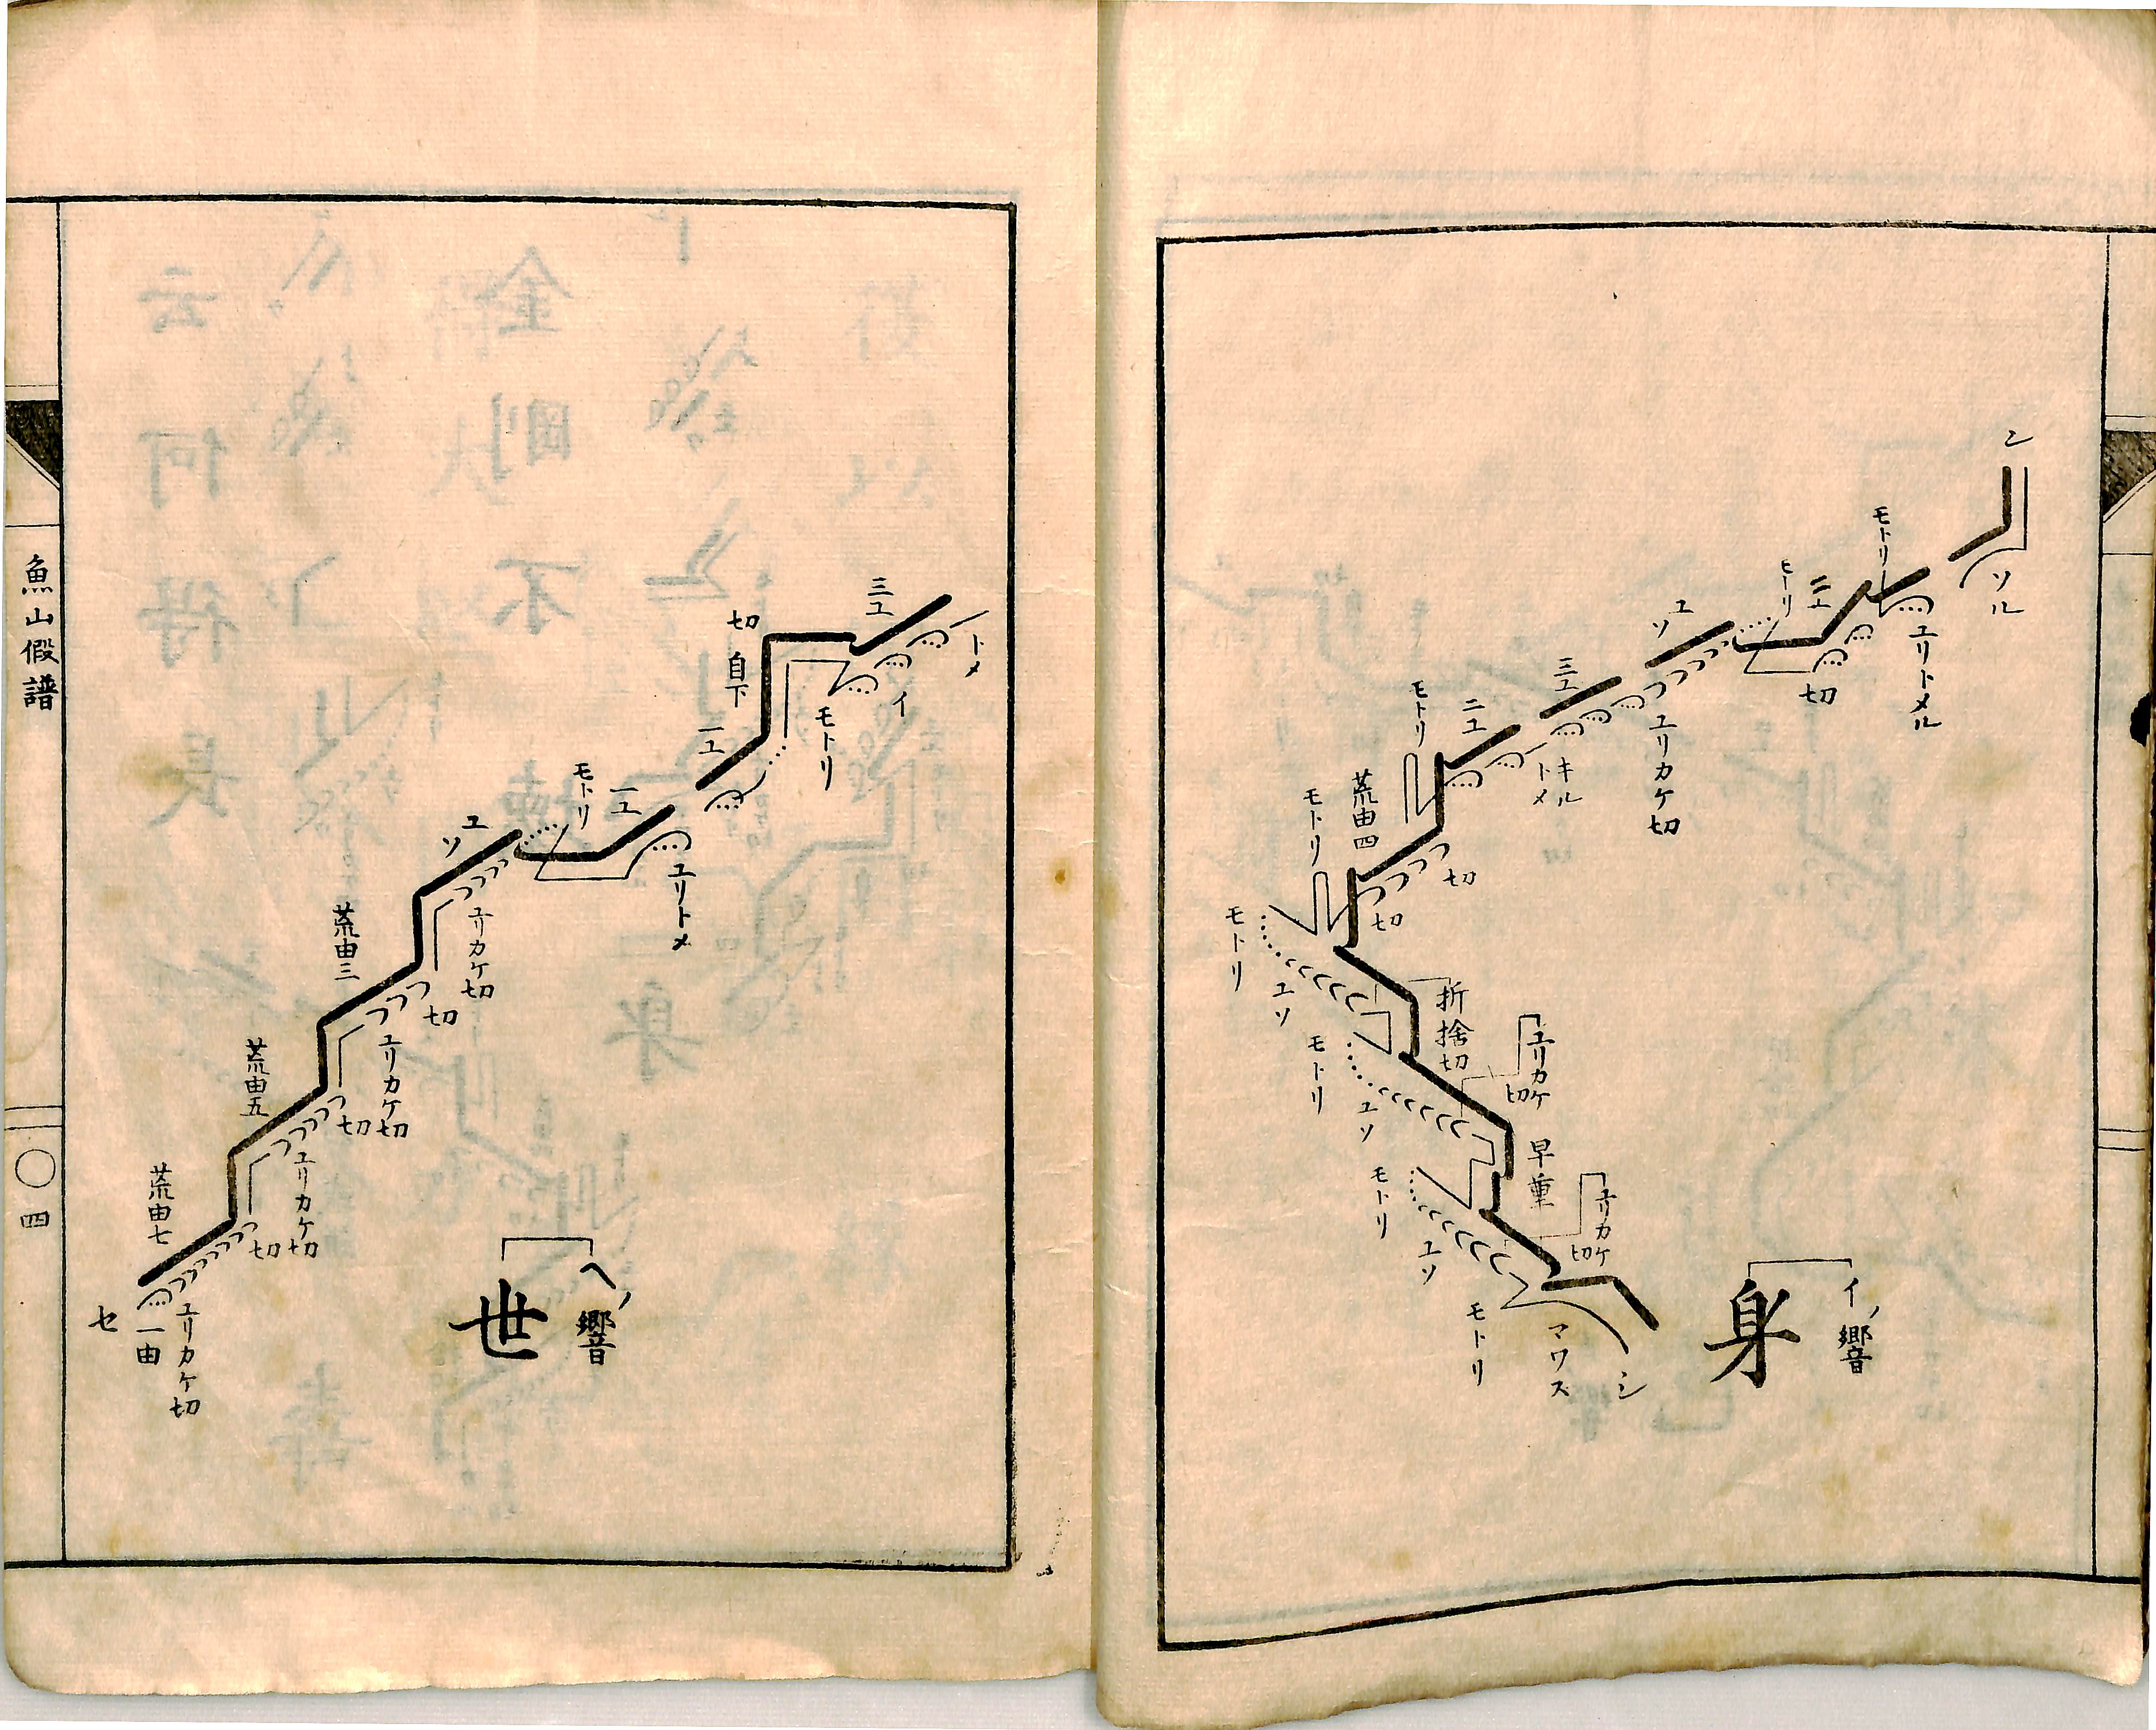 ン
ソル
モトリ
ユリトメル
二ユ
切
モトリ
ユソ
ユリカケ切
三ユ
キル
トメ
二ユ
モトリ
荒由四
切
モトリ
切
モトリ
ユソ
折捨切
モトリ
ユソ
ユリカケ
切
早重
モトリ
ユソ
ユリカケ
切
モトリ
マワス
シ
身
イノ響
トメ
三ユ
イ
切
自下
モトリ
二ユ
一ユ
モトリ
ユリトメ
ユソ
ユリカケ切
荒由三
切
ユリカケ切
荒由五
切
ユリカケ切
荒由七
切
ユリカケ切
一由
セ
世
ヘノ響
魚山假譜
〇四